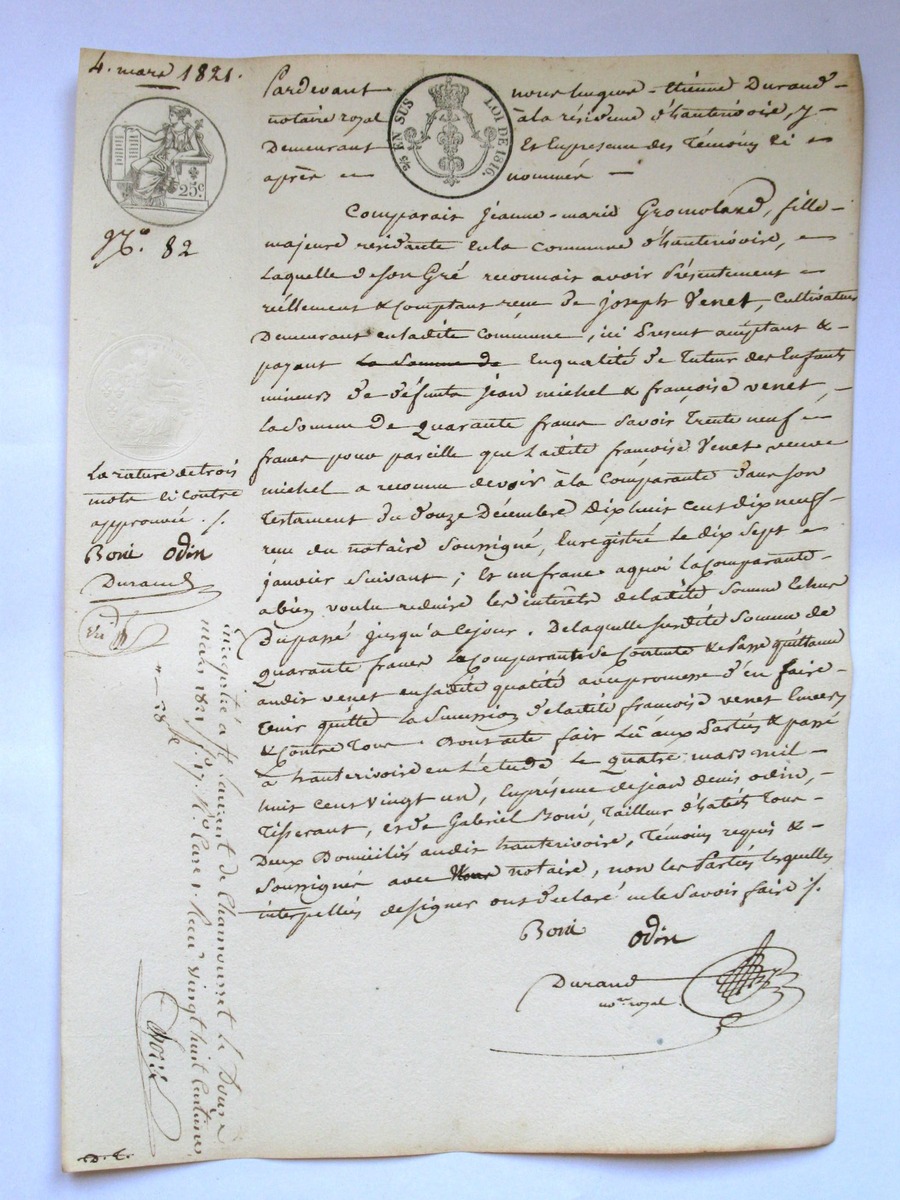 4. mars 1821.
25c.
⅖ EN SUS LOI DE 1816.
N.o 82
Pardevant nous hugues-Etienne Durand
notaire royal à la résidence d'hauterivoire, y
Demeurant Et En presence des Témoins Ci
après nommés
Comparait jeanne-marie Gromoland, fille
majeure residante En la commune d'hauterivoire,
Laquelle de son Gré reconnait avoir présentement
réellement & Comptant reçu de joseph Venet, cultivateur
Demeurant en ladite commune, ici present acceptant &
payant la Somme de En qualité de tuteur des Enfants
mineurs de défunts jean michel & françoise venet,
la Somme de Quarante francs Savoir Trente neuf
francs pour pareille que Ladite françoise Venet veuve
michel a reconnu devoir à la Comparante dans son
Testament du Douze Décembre Dix huit cent dix neuf
reçu du notaire soussigné, Enregistré Le dix Sept
janvier suivant; Et un franc a quoi La Comparante
a bien voulu reduire les intérêts de ladite Somme Echus
Du passé jusqu'a ce jour. De laquelle susdite Somme de
quarante francs La Comparante se Contente & passe quittance
audit venet en sadite qualité avec promesse d'en faire
tenir quitte La Succession de ladite françoise venet Envers
& Contre Tous. Dont acte fait Lu aux Parties & passé
à hauterivoire en L'étude Le quatre mars mil
huit cent vingt un, En présence de jean denis odin,
Tisserant, et de Gabriel Boni, Tailleur d'habits Tous
Deux Domiciliés audit hauterivoire, Témoins requis &
Soussignés avec Nous notaire, non les Parties lesquelles
interpellées de signer ont déclaré ne le Savoir faire ./.
Boni odin
Durand
nore royal.
La rature de trois
mots Ci Contre
approuvée ./.
Boni odin
Durand
Enregistré a St laurent de Chamousset le Douze
mars 1821, fo 17. Vo Care 1. Recu vingt huit centimes